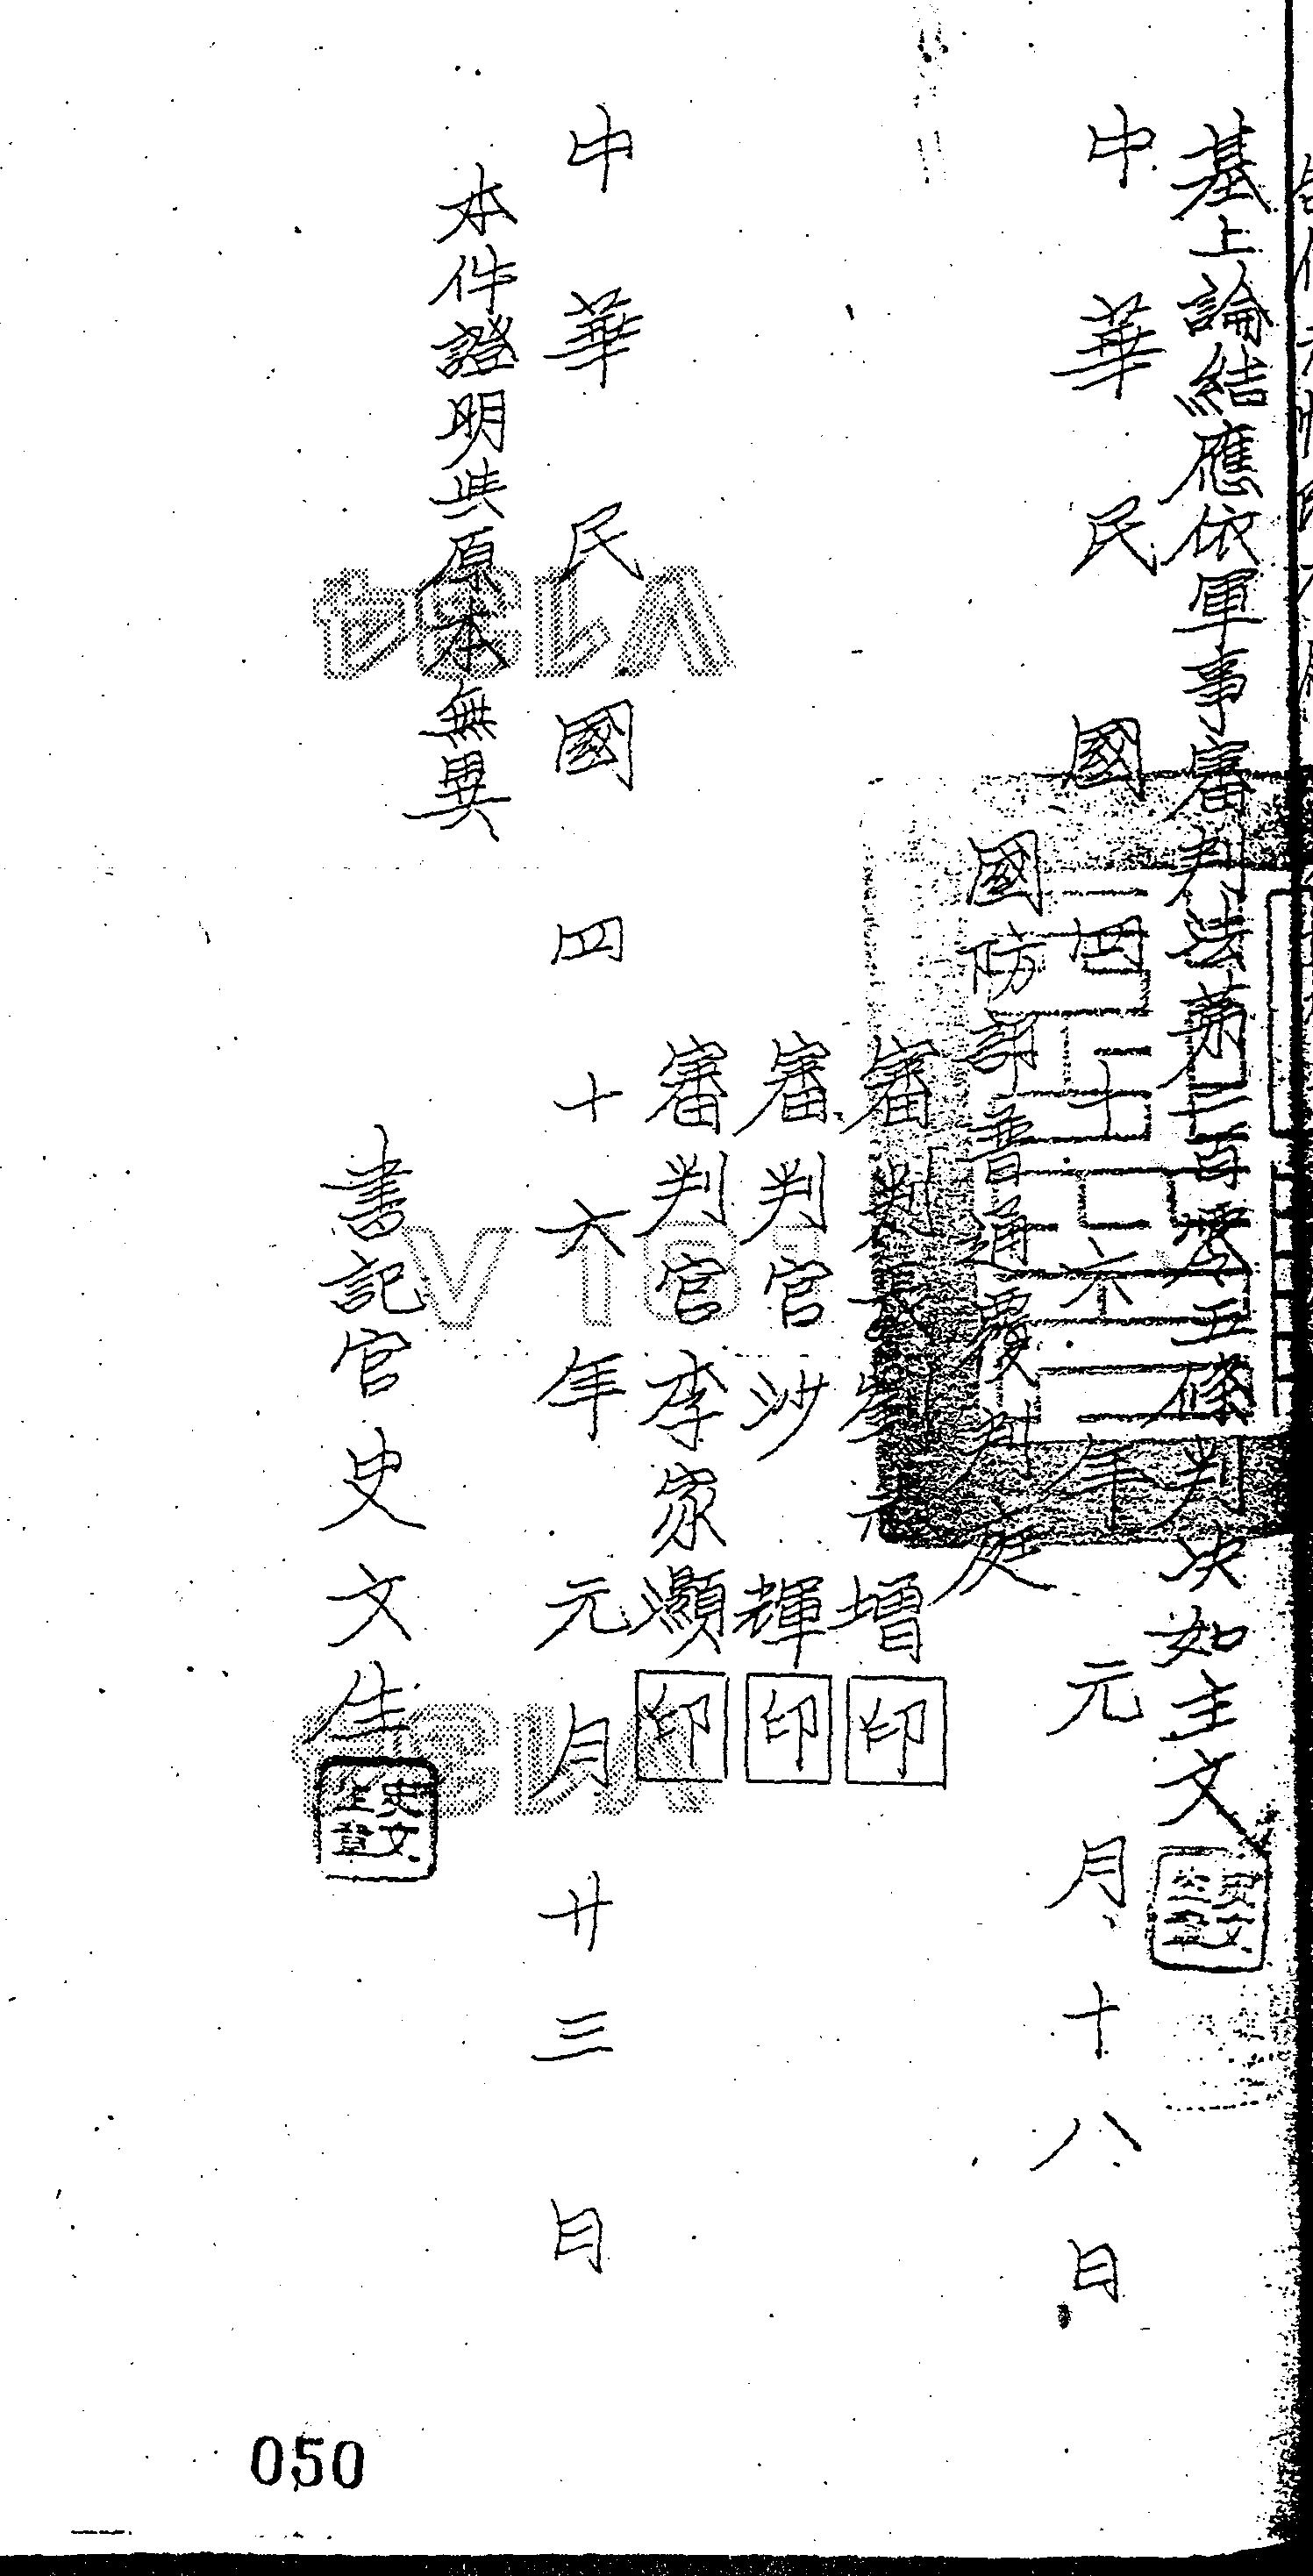 基上論結應依軍事審判法第二百零五條判決如主文
中華民國四十六年元月十八日
國防部普通覆判庭
審判長劉元增印
審判官沙輝印
審判官李家灝印
中華民國四十六年元月廿三日
本件證明與原本無異
書記官史文生
史文生章
050